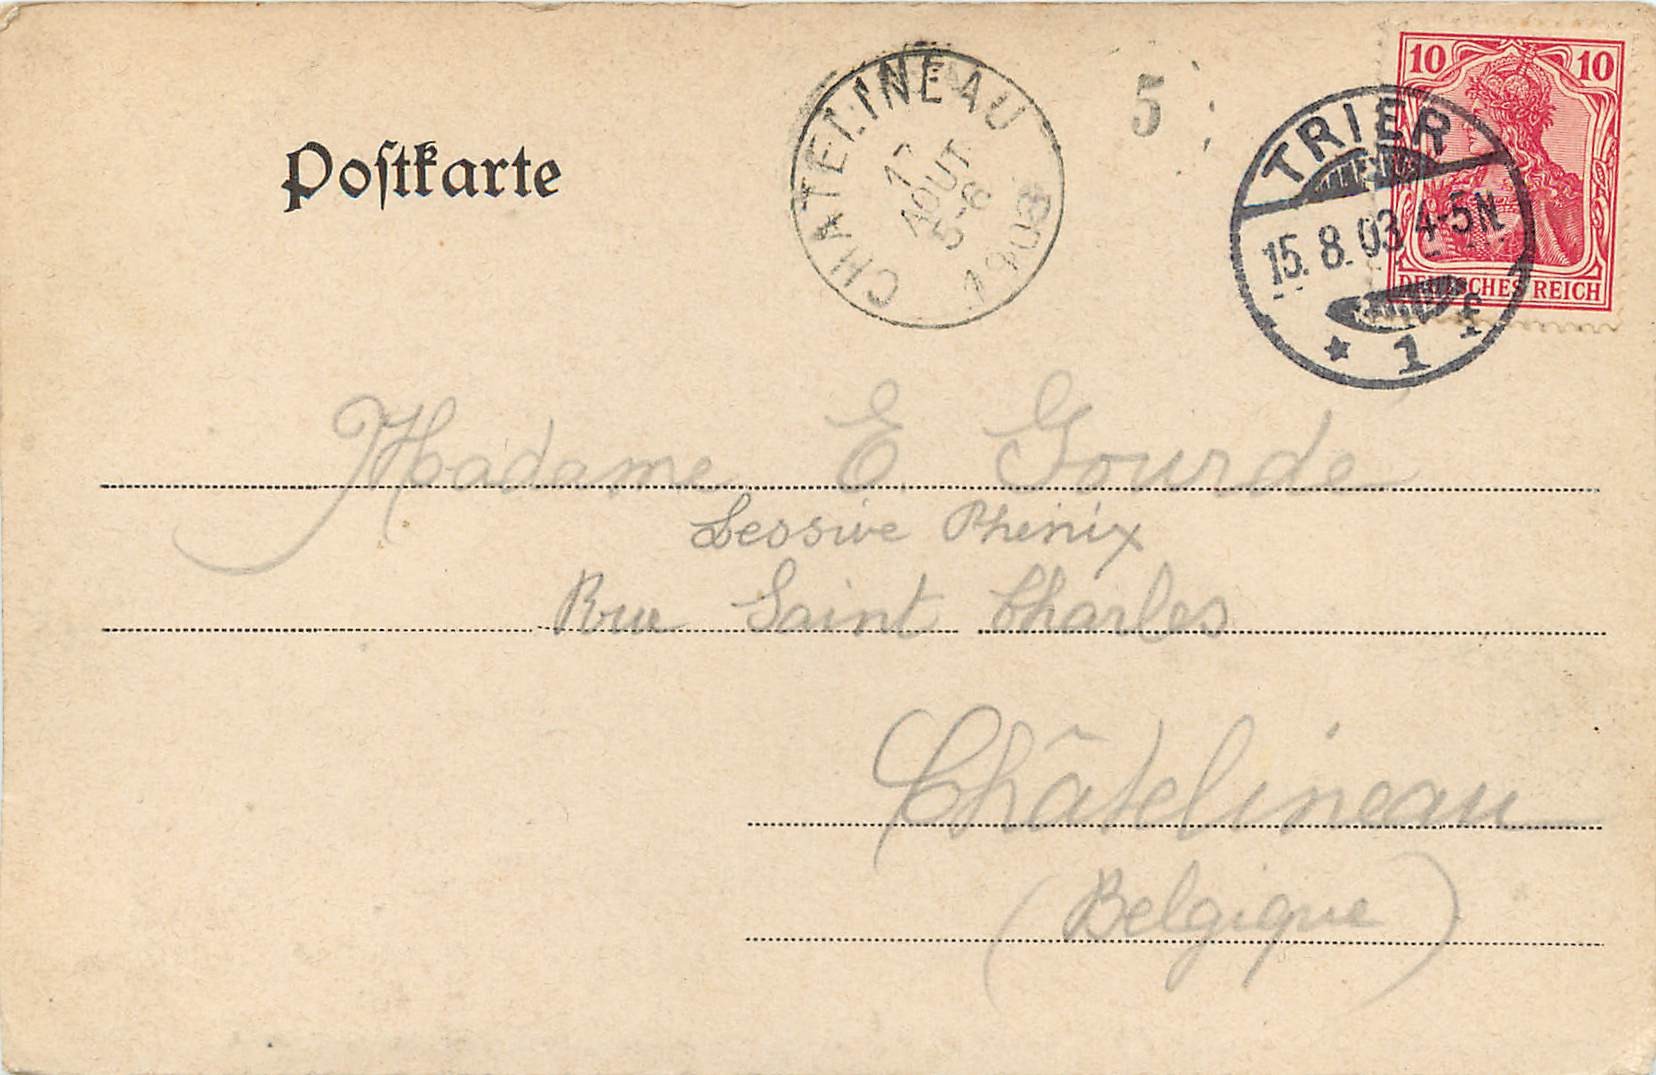 Postkarte
CHATELINEAU
AOUT
5-6
1903
5
10 10
TRIER
15. 8. 03 4-5N
* 1 f
DEUTSCHES REICH
Madame E. Gourde
Lessive Phénix
Rue Saint Charles
Châtelineau
(Belgique)